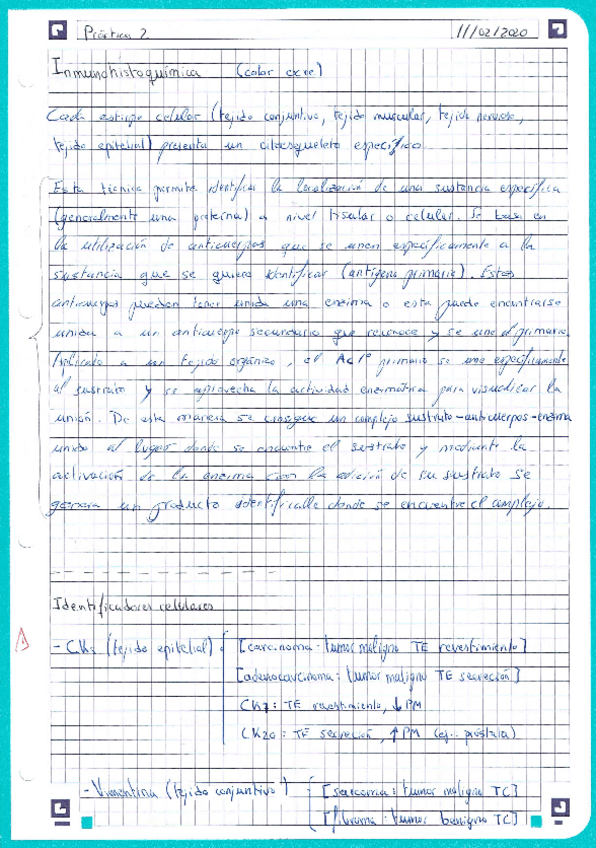 Práctica 2
11/02/2020
Inmunohistoquímica (color ocre)
Cada estirpe celular (tejido conjuntivo, tejido muscular, tejido nervioso,
tejido epitelial) presenta un citoesqueleto específico.
Esta técnica permite identificar la localización de una sustancia específica
(generalmente una proteína) a nivel tisular o celular. Se basa en
la utilización de anticuerpos que se unen específicamente a la
sustancia que se quiere identificar (antígeno primario). Estos
anticuerpos pueden tener unida una enzima o esta puede encontrarse
unida a un anticuerpo secundario que reconoce y se une al primario.
Aplicado a un tejido orgánico, el Ac 1º primario se une específicamente
al sustrato y se aprovecha la actividad enzimática para visualizar la
unión. De esta manera se consigue un complejo sustrato-anticuerpos-enzima
unido al lugar donde se encuentre el sustrato y mediante la
activación de la enzima con la adición de su sustrato se
genera un producto identificable donde se encuentre el complejo.
Identificadores celulares
A
- CKs (tejido epitelial) { [carcinoma: tumor maligno TE revestimiento]
[adenocarcinoma: tumor maligno TE secreción]
CK7: TE revestimiento, ↓PM
CK20: TE secreción, ↑PM (ej.: próstata)
- Vimentina (tejido conjuntivo) { [sarcoma: tumor maligno TC]
[fibroma: tumor benigno TC]